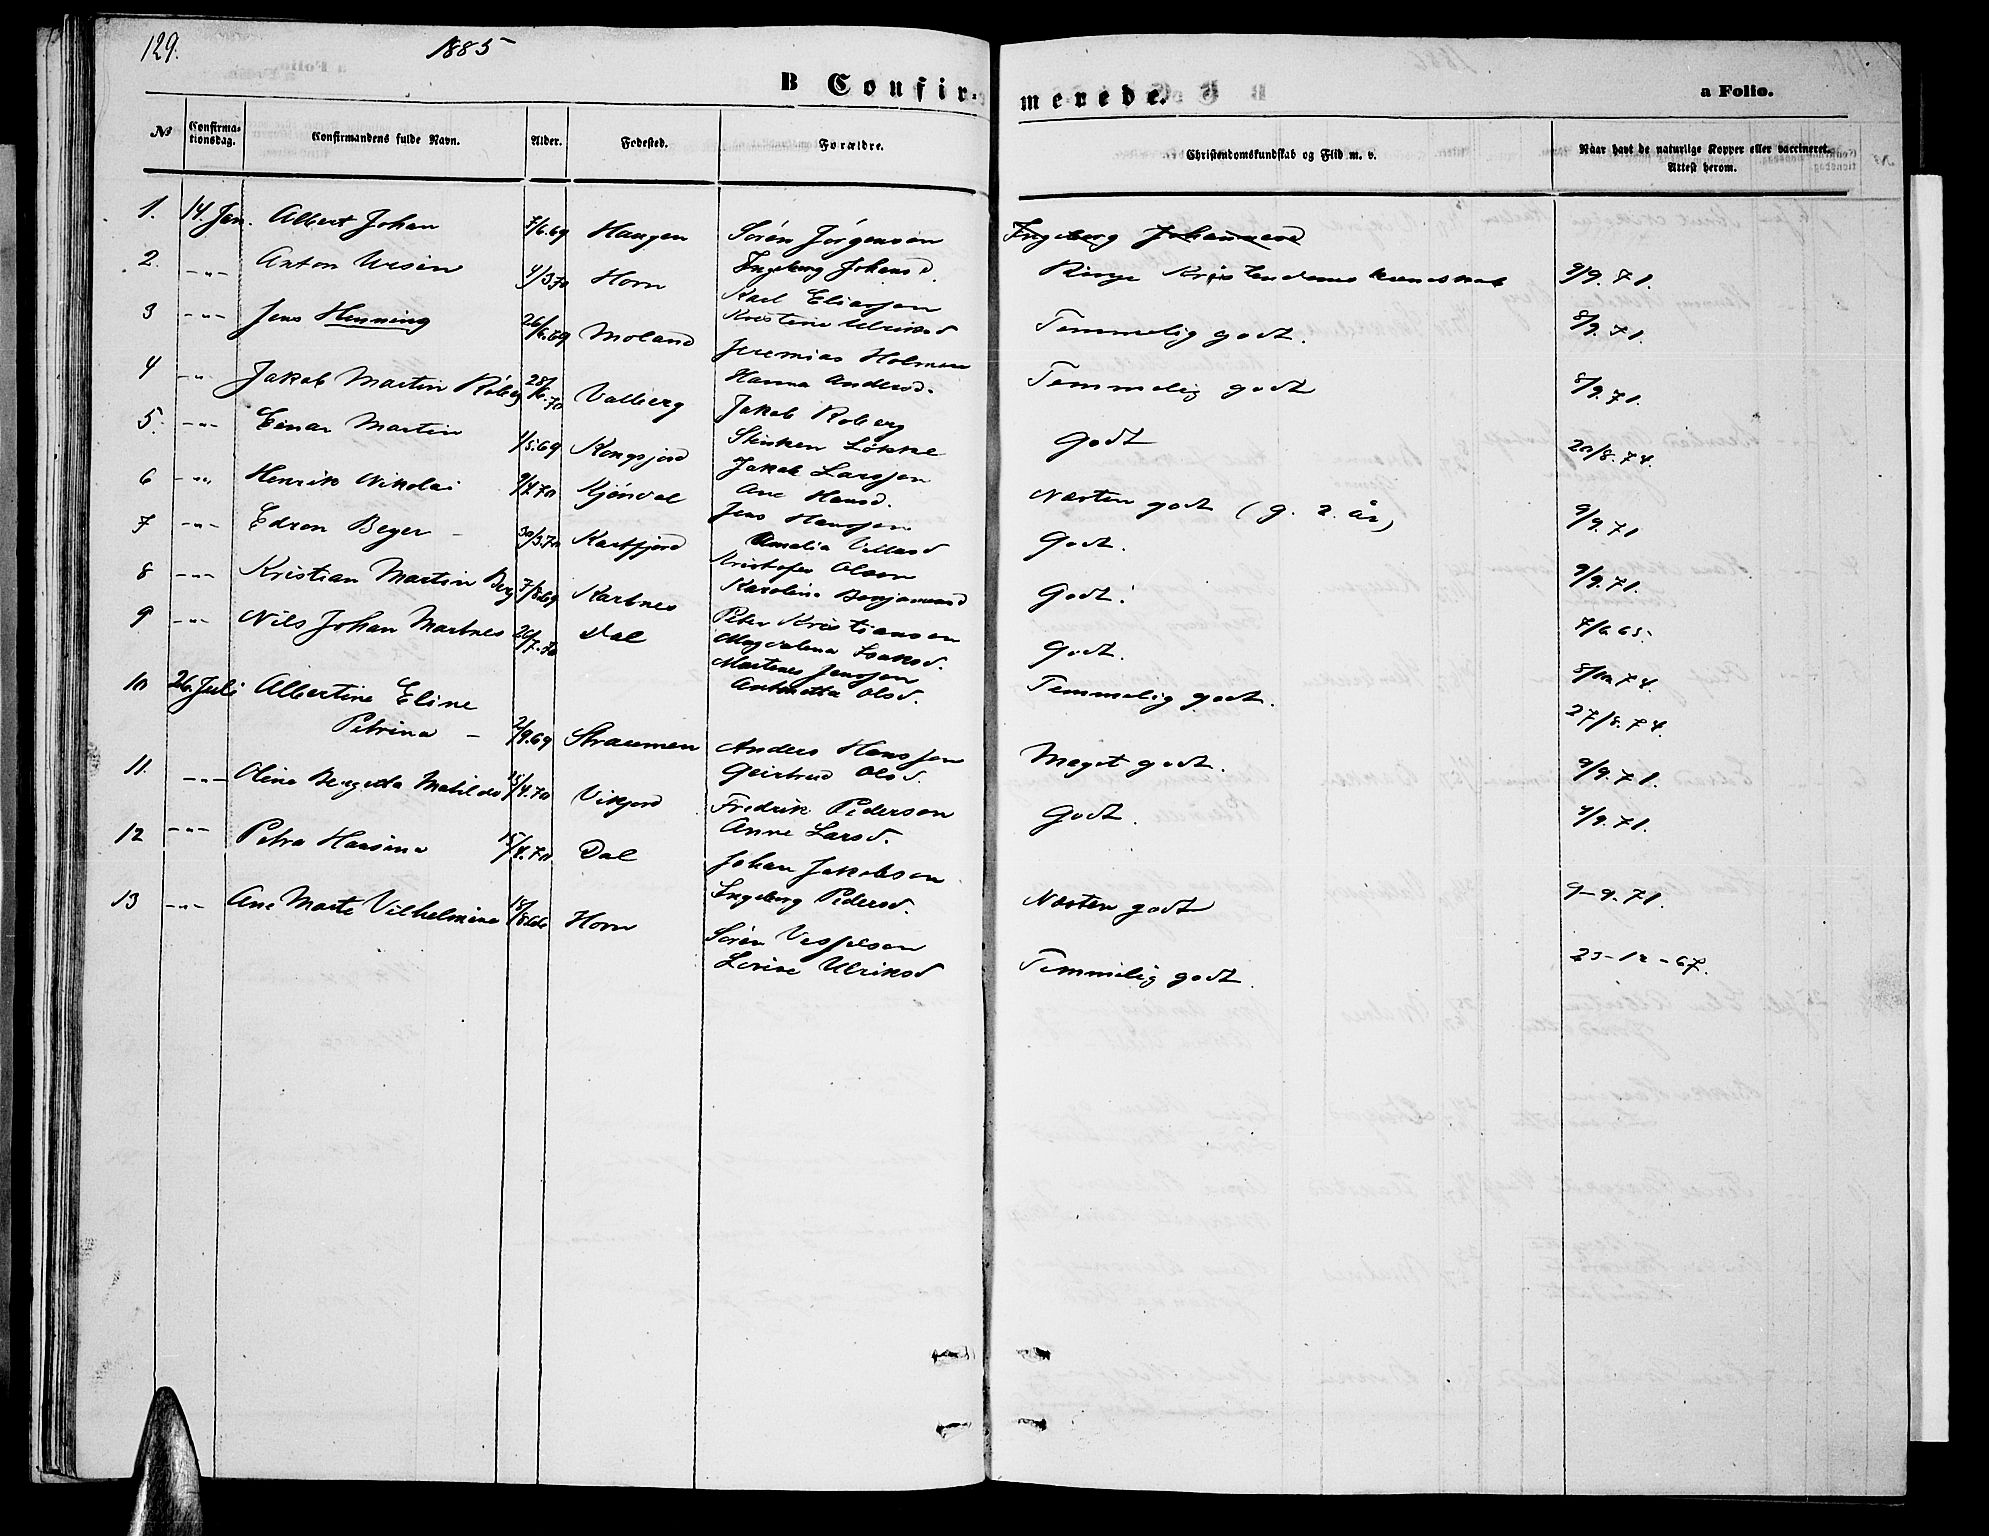 129. 1885
B Confir- merede. a Folio.
No Confirmationsdag. Confirmandens fulde Navn. Alder. Fødested. Forældre. Christendomskundskab og Flid m. v. Naar havt de naturlige Kopper eller vaccineret. Attest herom.
1. 14. Jan. Albert Johan 7/6.69 Haugen Sören Jörgensen
Ingeborg Johansd. Ringe Kristendoms kundskab 9/9.71.
2. -"- Anton Ursin 4/3.70 Horn Karl Eliassen
Kristine Ulriksd Temmelig godt. 8/9.71.
3 -"- Jens Henning 26/6.69 Moland Jeremias Holmen
Hanna Andersd. Temmelig godt 8/9.71.
4 -"- Jakob Martin Röberg 28/6.70 Valberg Jakob Röberg
Løkke Godt 20/8.74.
5. -"- Einar Martin 1/5.69 Kongsjord Jakob Larssen
Ane Hansd. Næsten godt (g. 2. år) 9/9.71
6 -"- Henrik Nikolai 9/4.70 Kjöndal Jens Hanssen
Amalia Villasd Godt. 9/9.71.
7 -"- Edron Beyer - 30/3.70 Karlfjord Kristofer Olsen
Karoline Benjaminsd Godt. 7/6.65.
8 -"- Kristian Martin Berg 7/8.69 Karbnes Peter Kristiansen
Magdalena Isaksd. Godt. 8/10.74.
9 -"- Nils Johan Martnes 26/7.70 Dal Martines Jenssen
Antonetta Olsd. Temmelig godt. 27/8.74.
10 26. Juli Albertine Eline
Petrina - 2/9.69 Straumen Anders Hanssen
Geirtrud Olsd. Meget godt. 9/9.71.
11. -"- Oline Bergeta Matilde 15/4.70 Vikjord Fredrik Pedersen
Anne Larsd. Godt. 4/9.71.
12 -"- Petra Hansine 15/4.70 Dal Johan Jakobsen
Ingeborg Pedersd. Næsten godt 9-9.71.
13 -"- Ane Marte Vilhelmine 18/8.66 Horn Sören Vesselsen
Lovise Ulriksd Temmelig godt. 23-12-67.